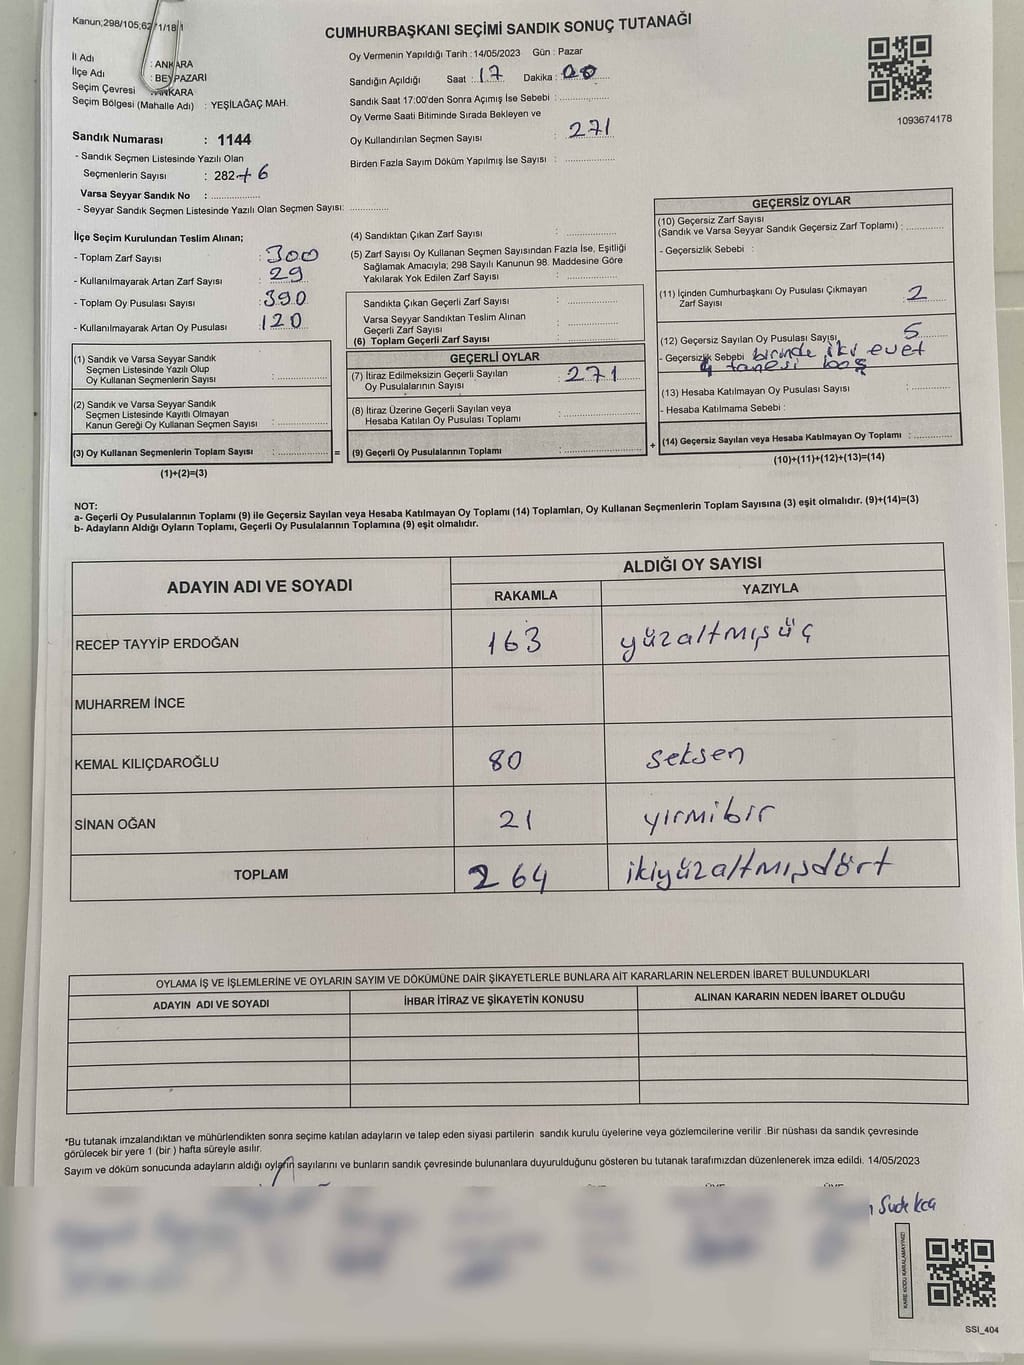 Kanun;298/105;62/1/18/1
CUMHURBAŞKANI SEÇİMİ SANDIK SONUÇ TUTANAĞI
İl Adı : ANKARA
İlçe Adı : BEYPAZARI
Seçim Çevresi : ANKARA
Seçim Bölgesi (Mahalle Adı) : YEŞİLAĞAÇ MAH.
Sandık Numarası : 1144
- Sandık Seçmen Listesinde Yazılı Olan
Seçmenlerin Sayısı : 282 + 6
Varsa Seyyar Sandık No : ....................
- Seyyar Sandık Seçmen Listesinde Yazılı Olan Seçmen Sayısı: ..............
Oy Vermenin Yapıldığı Tarih : 14/05/2023 Gün : Pazar
Sandığın Açıldığı Saat : 17 Dakika : 00
Sandık Saat 17:00'den Sonra Açımış İse Sebebi : ....................
Oy Verme Saati Bitiminde Sırada Bekleyen ve
Oy Kullandırılan Seçmen Sayısı : 271
Birden Fazla Sayım Döküm Yapılmış İse Sayısı : ....................
1093674178
İlçe Seçim Kurulundan Teslim Alınan;
- Toplam Zarf Sayısı : 300
- Kullanılmayarak Artan Zarf Sayısı : 29
- Toplam Oy Pusulası Sayısı : 390
- Kullanılmayarak Artan Oy Pusulası : 120
(1) Sandık ve Varsa Seyyar Sandık
Seçmen Listesinde Yazılı Olup
Oy Kullanan Seçmenlerin Sayısı : ....................
(2) Sandık ve Varsa Seyyar Sandık
Seçmen Listesinde Kayıtlı Olmayan
Kanun Gereği Oy Kullanan Seçmen Sayısı : ....................
(3) Oy Kullanan Seçmenlerin Toplam Sayısı : .................... =
(1)+(2)=(3)
(4) Sandıktan Çıkan Zarf Sayısı : ....................
(5) Zarf Sayısı Oy Kullanan Seçmen Sayısından Fazla İse, Eşitliği
Sağlamak Amacıyla; 298 Sayılı Kanunun 98. Maddesine Göre
Yakılarak Yok Edilen Zarf Sayısı : ....................
Sandıkta Çıkan Geçerli Zarf Sayısı : ....................
Varsa Seyyar Sandıktan Teslim Alınan
Geçerli Zarf Sayısı : ....................
(6) Toplam Geçerli Zarf Sayısı
GEÇERLİ OYLAR
(7) İtiraz Edilmeksizin Geçerli Sayılan
Oy Pusulalarının Sayısı : 271
(8) İtiraz Üzerine Geçerli Sayılan veya
Hesaba Katılan Oy Pusulası Toplamı : ....................
(9) Geçerli Oy Pusulalarının Toplamı : .................... +
GEÇERSİZ OYLAR
(10) Geçersiz Zarf Sayısı
(Sandık ve Varsa Seyyar Sandık Geçersiz Zarf Toplamı) : ..............
- Geçersizlik Sebebi :
(11) İçinden Cumhurbaşkanı Oy Pusulası Çıkmayan
Zarf Sayısı : 2
(12) Geçersiz Sayılan Oy Pusulası Sayısı : 5
- Geçersizlik Sebebi birinde iki evet
4 tanesi boş
(13) Hesaba Katılmayan Oy Pusulası Sayısı : ..............
- Hesaba Katılmama Sebebi :
(14) Geçersiz Sayılan veya Hesaba Katılmayan Oy Toplamı : ..............
(10)+(11)+(12)+(13)=(14)
NOT:
a- Geçerli Oy Pusulalarının Toplamı (9) ile Geçersiz Sayılan veya Hesaba Katılmayan Oy Toplamı (14) Toplamları, Oy Kullanan Seçmenlerin Toplam Sayısına (3) eşit olmalıdır. (9)+(14)=(3)
b- Adayların Aldığı Oyların Toplamı, Geçerli Oy Pusulalarının Toplamına (9) eşit olmalıdır.
ADAYIN ADI VE SOYADI
ALDIĞI OY SAYISI
RAKAMLA YAZIYLA
RECEP TAYYİP ERDOĞAN 163 yüzaltmışüç
MUHARREM İNCE
KEMAL KILIÇDAROĞLU 80 seksen
SİNAN OĞAN 21 yirmibir
TOPLAM 264 ikiyüzaltmışdört
OYLAMA İŞ VE İŞLEMLERİNE VE OYLARIN SAYIM VE DÖKÜMÜNE DAİR ŞİKAYETLERLE BUNLARA AİT KARARLARIN NELERDEN İBARET BULUNDUKLARI
ADAYIN ADI VE SOYADI İHBAR İTİRAZ VE ŞİKAYETİN KONUSU ALINAN KARARIN NEDEN İBARET OLDUĞU
*Bu tutanak imzalandıktan ve mühürlendikten sonra seçime katılan adayların ve talep eden siyasi partilerin sandık kurulu üyelerine veya gözlemcilerine verilir .Bir nüshası da sandık çevresinde
görülecek bir yere 1 (bir ) hafta süreyle asılır.
Sayım ve döküm sonucunda adayların aldığı oyların sayılarını ve bunların sandık çevresinde bulunanlara duyurulduğunu gösteren bu tutanak tarafımızdan düzenlenerek imza edildi. 14/05/2023
Sude
KARE KODU KARALAMAYINIZ!
SSI_404